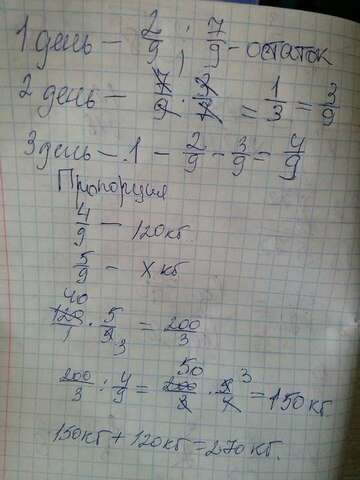 1 день – 2/9 ; 7/9 – остаток
2 день – 7/9 · 3/7 = 1/3 = 3/9
3 день – 1 – 2/9 – 3/9 = 4/9
Пропорция
4/9 – 120 кг
5/9 – х кг
40
120/1 · 5/9 3 = 200/3
200/3 : 4/9 = 200/3 50 · 9/4 3 = 150 кг
150кг + 120кг = 270 кг.